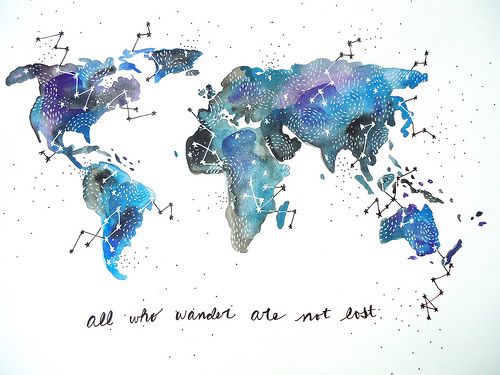 all who wander are not lost.